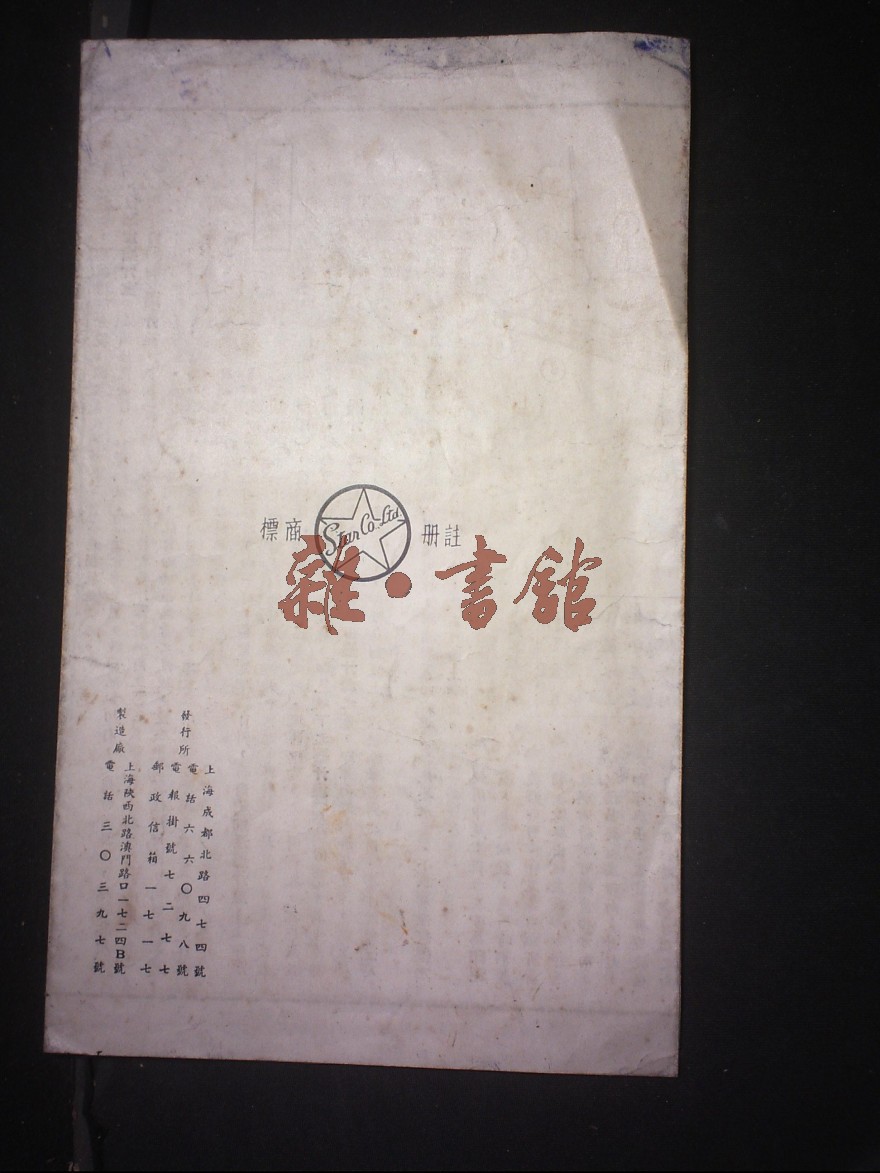 註冊 商標
Star Co. Ltd.
雜·書館
發行所
上海成都北路四七四號
電話六六〇九八號
電報掛號七二七七
郵政信箱一七一七
製造廠
上海陝西北路澳門路口一七二四B號
電話三〇三九七號